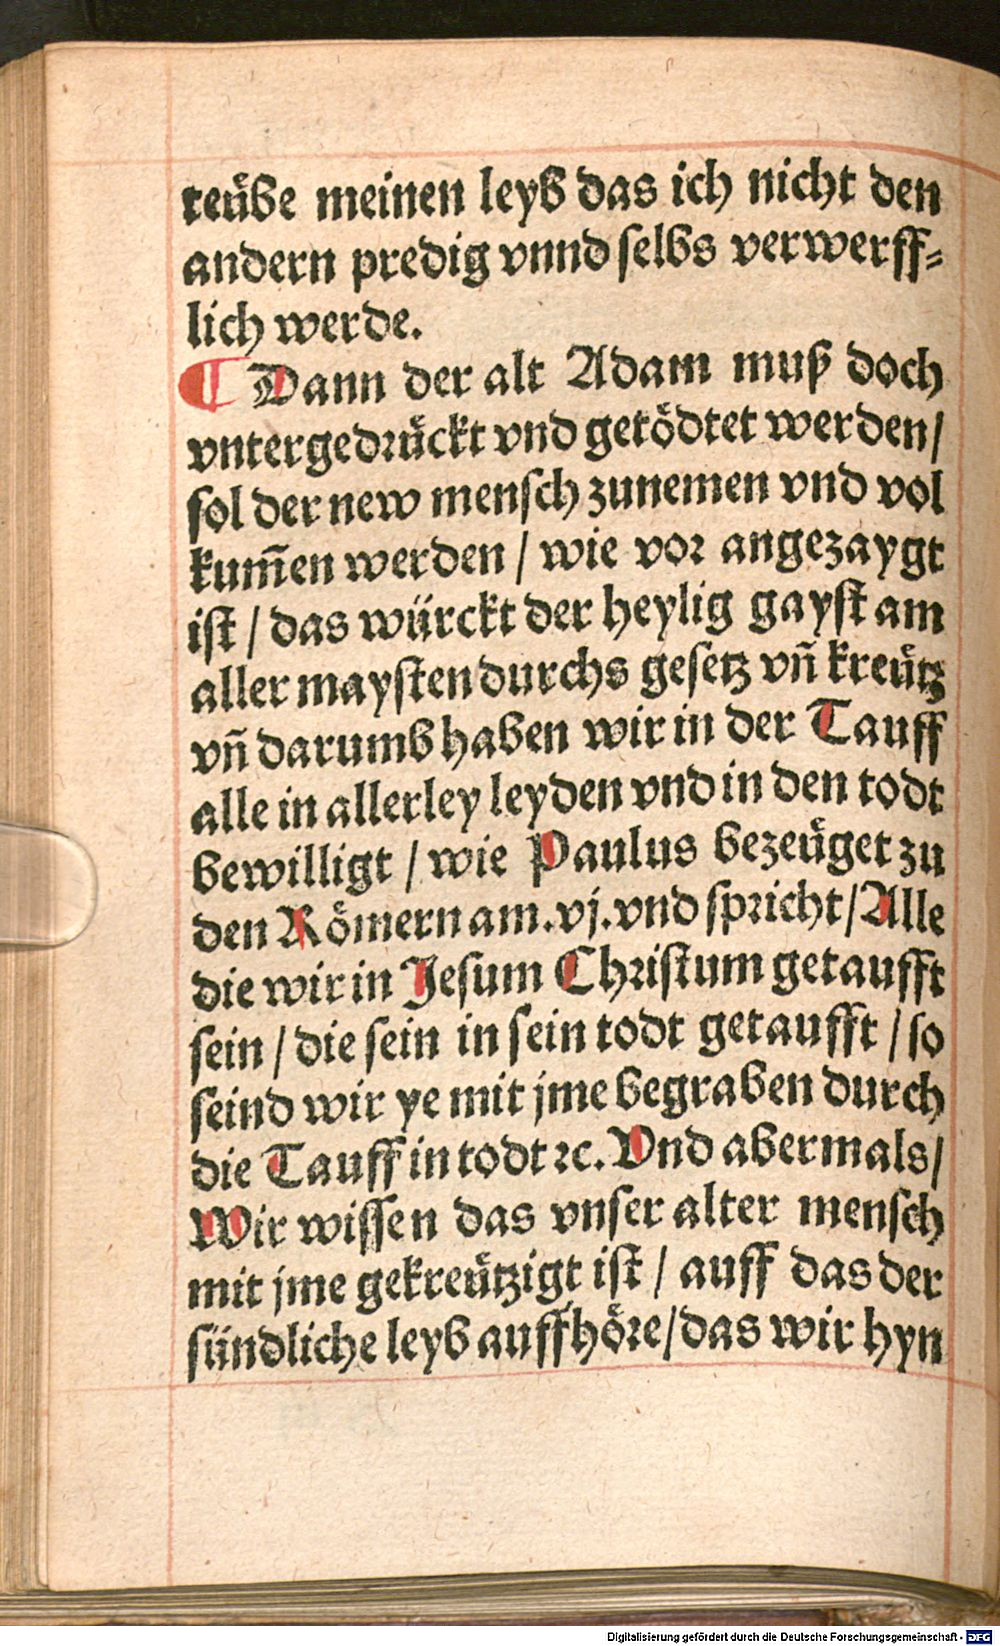 teübe meinen leyb das ich nicht den
andern predig vnnd selbs verwerff-
lich werde.
¶ Dann der alt Adam muß doch
vntergedrückt vnd getödtet werden/
sol der new mensch zunemen vnd vol
kum̄en werden / wie vor angezaygt
ist / das würckt der heylig gayst am
aller maysten durchs gesetz vn̄ kreütz
vn̄ darumb haben wir in der Tauff
alle in allerley leyden vnd in den todt
bewilligt / wie Paulus bezeüget zu
den Römern am .vj. vnd spricht / Alle
die wir in Jesum Christum getaufft
sein / die sein in sein todt getaufft / so
seind wir ye mit jme begraben durch
die Tauff in todt ⁊c. Vnd abermals/
Wir wissen das vnser alter mensch
mit jme gekreützigt ist / auff das der
sündliche leyb auffhöre / das wir hyn
Digitalisierung gefördert durch die Deutsche Forschungsgemeinschaft - DFG